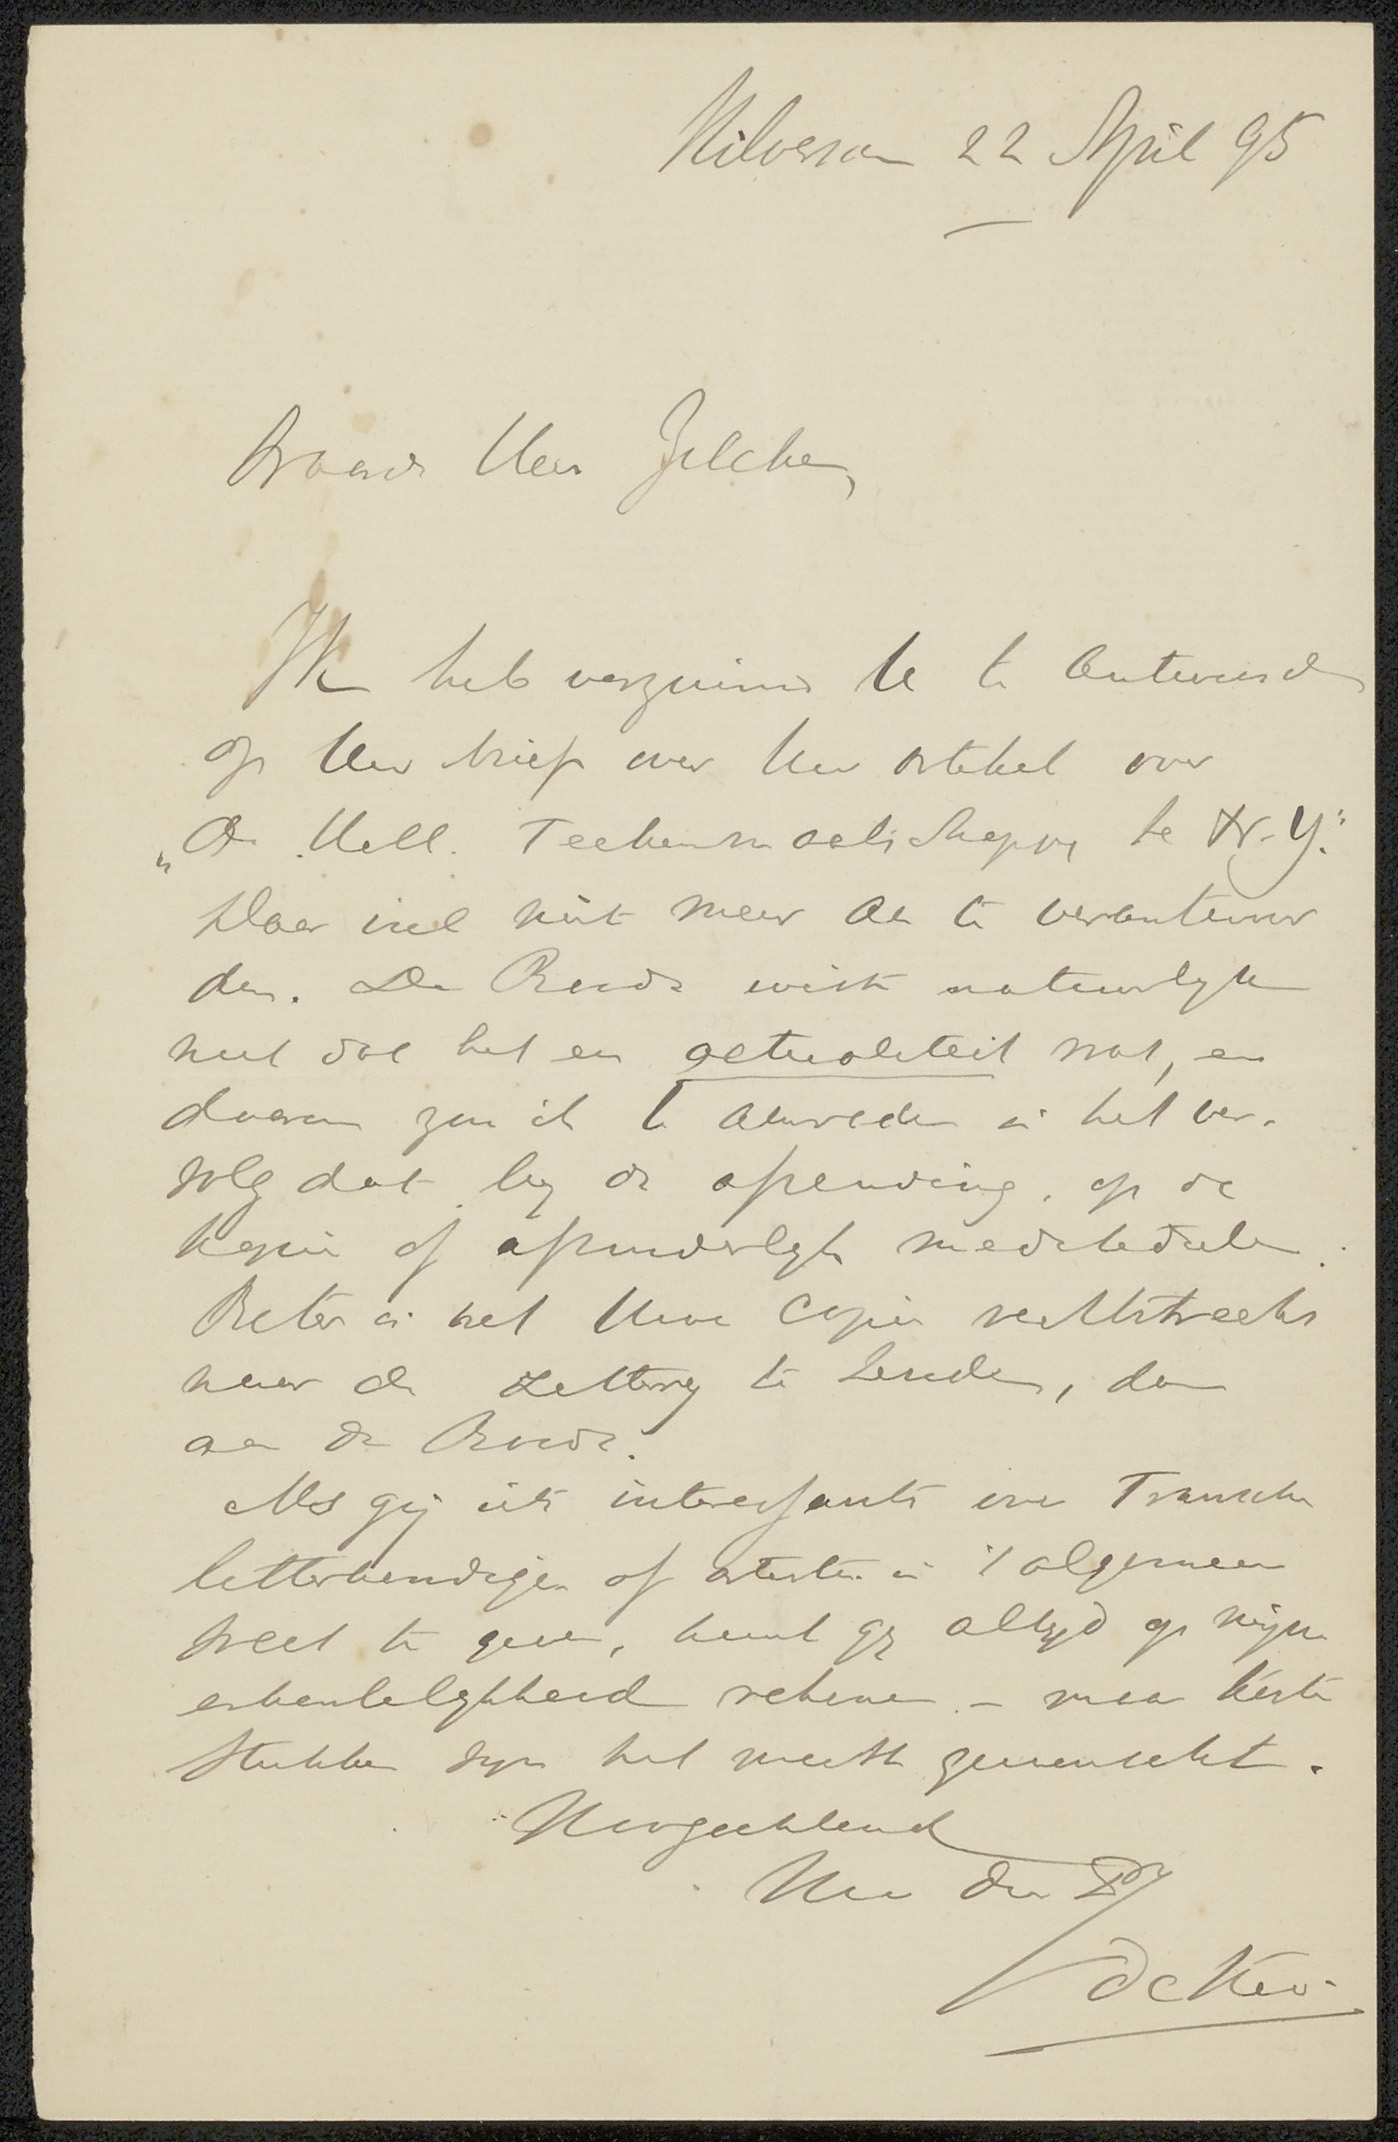 Hilversum 22 April 95
Waarde Heer Zilcken,
Ik heb verzuimd U te antwoorden
op Uw brief over Uw artikel over
"De Holl. Teekenmaatschappy te N.Y."
Daar viel niet meer aan te verantwoor
den. De Roode wist natuurlyk
niet dat het een actualiteit was, en
daarom zou ik U aanraden in het ver-
volg dat by de afzending, op de
kopie of afzonderlyk mede te deelen.
Beter is het Uwe copie rechtstreeks
naar de zettery te zenden, dan
aan de Roode.
Als gij iets interessants over Fransche
letterkundigen of artisten in 't algemeen
weet te geven, kunt gy altyd op mijne
erkentelykheid rekenen - maar korte
stukken zyn het meest gewenscht.
Hoogachtend
Uw dw Dr
de Koo.